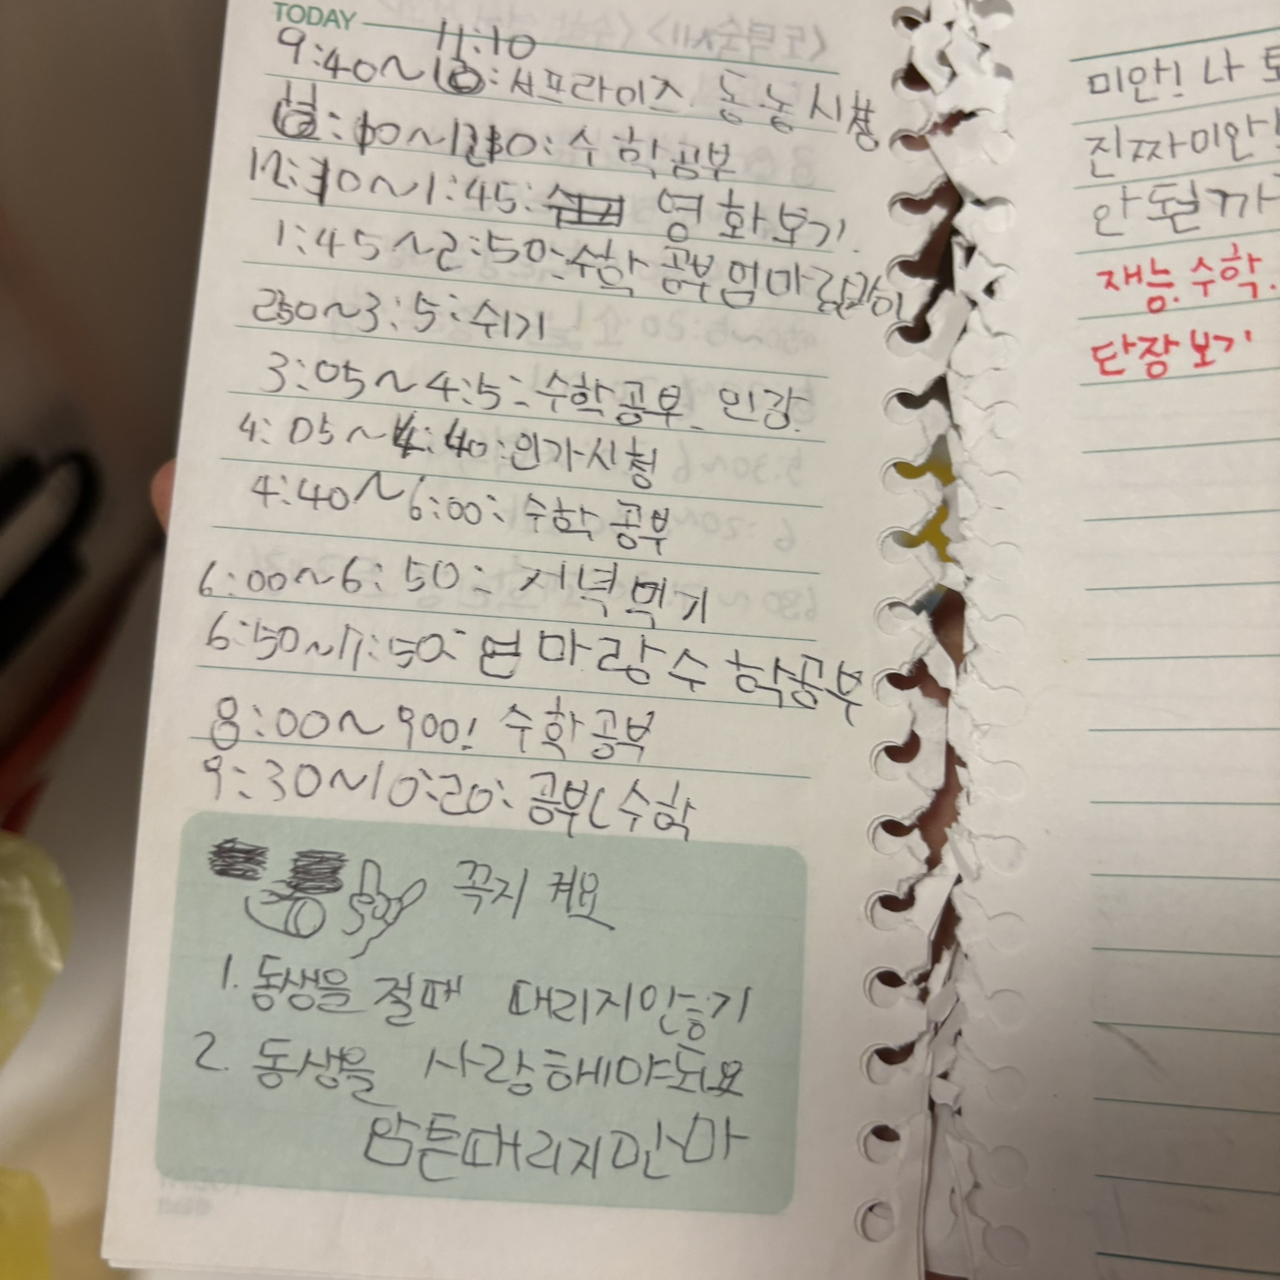 TODAY
11:10
9:40~10: 서프라이즈 동농시청
11:10~12:10: 수학공부
12:10~1:45: 영화보기.
1:45~2:50: 수학 공부 엄마랑같이
2:50~3:5: 쉬기
3:05~4:5: 수학공부 인강.
4:05~4:40: 인가시청
4:40~6:00: 수학 공부
6:00~6:50: 저녁먹기
6:50~7:50: 엄마랑 수학공부
8:00~900: 수학공부
9:30~10:20: 공부(수학
꼭지켜요
1. 동생을 절때 대리지안흥기
2. 동생을 사랑헤야되요
암튼때리지만마
미안! 나
진짜미안
안될까
재능. 수학.
단장보기